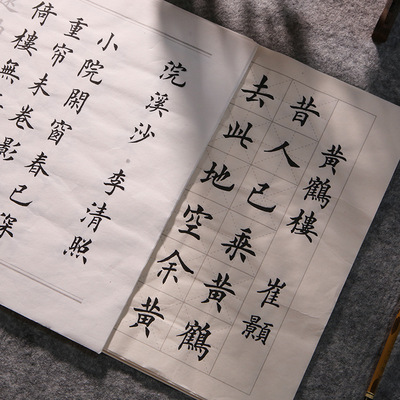 黄鶴樓 崔顥
昔人已乘黄鶴
去此地空余黄
浣溪沙 李清照
小院閑窗春已深
重帘未卷影
倚樓無